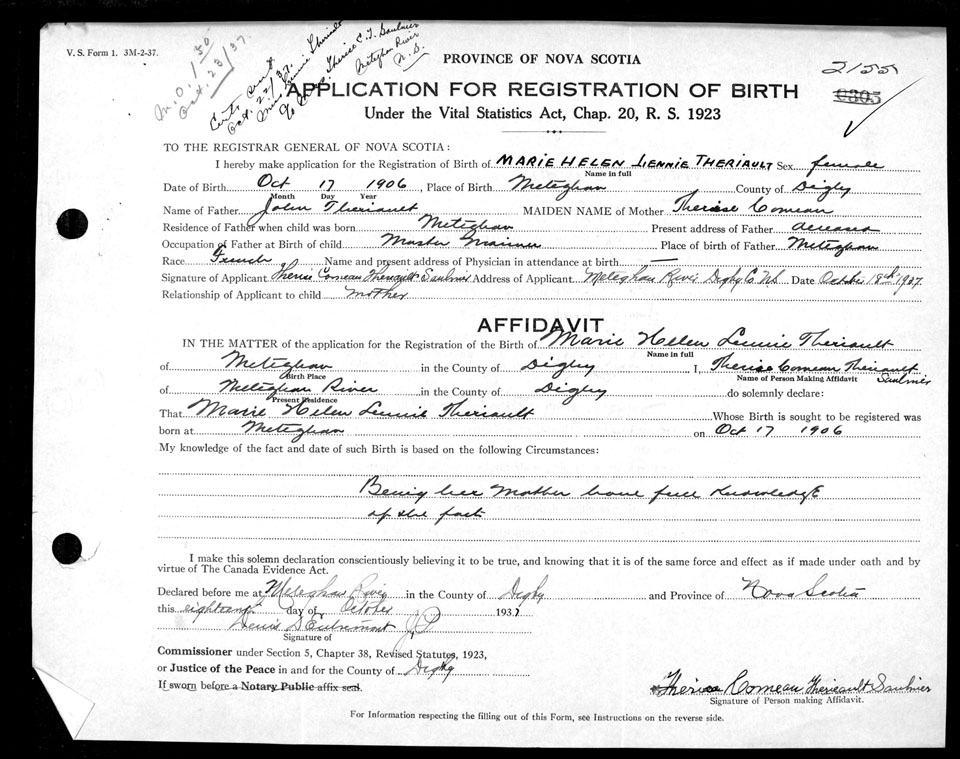 V. S. Form 1. 3M-2-37.
M.O. 1 50
Oct. 23/37.
Cert. sent
Oct. 22/37.
Miss Lennie Theriault
% Mrs. Therise C. T. Saulnier
Meteghan River
N.S.
PROVINCE OF NOVA SCOTIA
2155
0305
APPLICATION FOR REGISTRATION OF BIRTH
Under the Vital Statistics Act, Chap. 20, R. S. 1923
TO THE REGISTRAR GENERAL OF NOVA SCOTIA:
I hereby make application for the Registration of Birth of MARIE HELEN LENNIE THERIAULT Sex female
Name in full
Date of Birth Oct 17 1906, Place of Birth Meteghan County of Digby
Month Day Year
Name of Father John Theriault MAIDEN NAME of Mother Therise Comeau
Residence of Father when child was born Meteghan Present address of Father deceased
Occupation of Father at Birth of child Master Mariner Place of birth of Father Meteghan
Race French Name and present address of Physician in attendance at birth —
Signature of Applicant Theris Comeau Theriault Saulnier Address of Applicant Meteghan River Digby Co NS Date October 18th 1937.
Relationship of Applicant to child mother
AFFIDAVIT
IN THE MATTER of the application for the Registration of the Birth of Marie Helen Lennie Theriault
Name in full
of Meteghan in the County of Digby I, Therise Comeau Theriault Saulnier
Birth Place Name of Person Making Affidavit
of Meteghan River in the County of Digby do solemnly declare:
Present Residence
That Marie Helen Lennie Theriault Whose Birth is sought to be registered was
born at Meteghan on Oct 17 1906
My knowledge of the fact and date of such Birth is based on the following Circumstances:
Being her Mother have full Knowledge
of the fact
I make this solemn declaration conscientiously believing it to be true, and knowing that it is of the same force and effect as if made under oath and by
virtue of The Canada Evidence Act.
Declared before me at Meteghan River in the County of Digby and Province of Nova Scotia
this day of October 1937
Denis D'Entremont J.P
Signature of
Commissioner under Section 5, Chapter 38, Revised Statutes, 1923,
or Justice of the Peace in and for the County of Digby
If sworn before a Notary Public affix seal.
Therise Comeau Theriault Saulnier
Signature of Person making Affidavit.
For Information respecting the filling out of this Form, see Instructions on the reverse side.